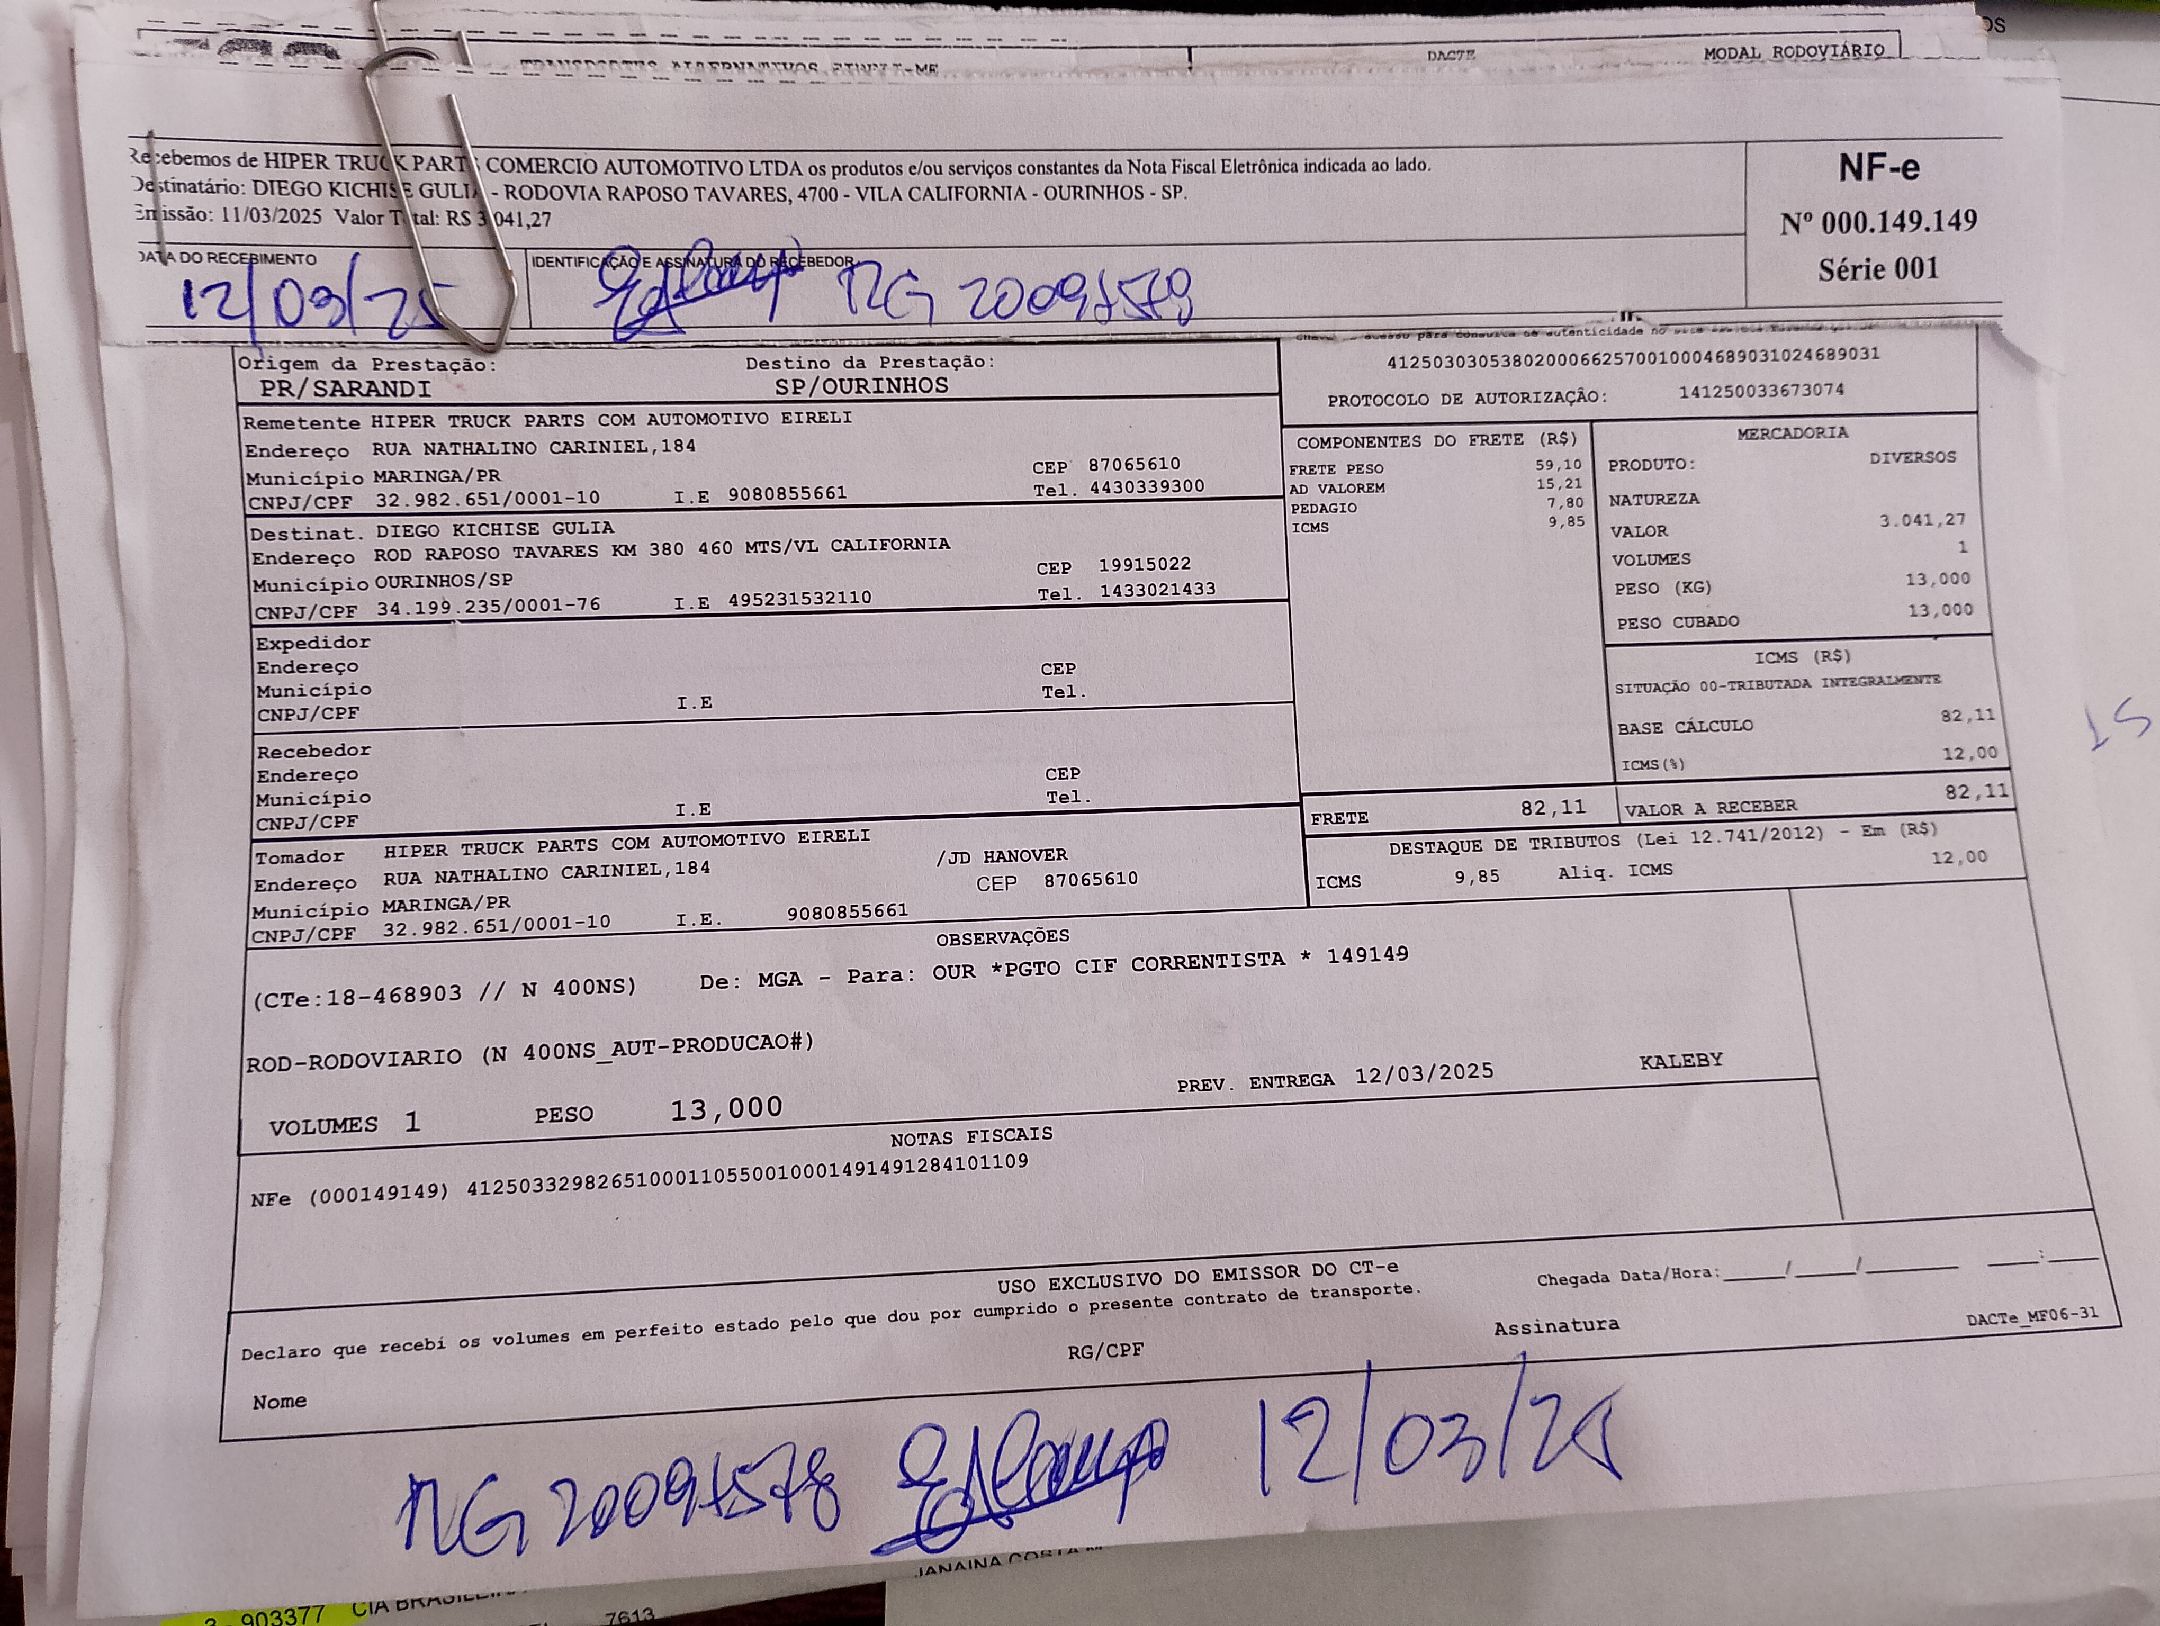 OS
DACTE
MODAL RODOVIÁRIO
TRANSPORTES ALTERNATIVOS
Recebemos de HIPER TRUCK PARTS COMERCIO AUTOMOTIVO LTDA os produtos e/ou serviços constantes da Nota Fiscal Eletrônica indicada ao lado.
Destinatário: DIEGO KICHISE GULIA - RODOVIA RAPOSO TAVARES, 4700 - VILA CALIFORNIA - OURINHOS - SP.
Emissão: 11/03/2025 Valor Total: R$ 3.041,27
NF-e
Nº 000.149.149
Série 001
DATA DO RECEBIMENTO
12/03/25
IDENTIFICAÇÃO E ASSINATURA DO RECEBEDOR
RG 20097578
para consulta de autenticidade no
41250303053802000662570010004689031024689031
PROTOCOLO DE AUTORIZAÇÃO: 141250033673074
Origem da Prestação: Destino da Prestação:
PR/SARANDI SP/OURINHOS
Remetente HIPER TRUCK PARTS COM AUTOMOTIVO EIRELI
Endereço RUA NATHALINO CARINIEL,184
Município MARINGA/PR CEP 87065610
CNPJ/CPF 32.982.651/0001-10 I.E 9080855661 Tel. 4430339300
Destinat. DIEGO KICHISE GULIA
Endereço ROD RAPOSO TAVARES KM 380 460 MTS/VL CALIFORNIA
Município OURINHOS/SP CEP 19915022
CNPJ/CPF 34.199.235/0001-76 I.E 495231532110 Tel. 1433021433
Expedidor
Endereço CEP
Município Tel.
CNPJ/CPF I.E
Recebedor
Endereço CEP
Município Tel.
CNPJ/CPF I.E
Tomador HIPER TRUCK PARTS COM AUTOMOTIVO EIRELI
Endereço RUA NATHALINO CARINIEL,184 /JD HANOVER
Município MARINGA/PR CEP 87065610
CNPJ/CPF 32.982.651/0001-10 I.E. 9080855661
COMPONENTES DO FRETE (R$)
FRETE PESO 59,10
AD VALOREM 15,21
PEDAGIO 7,80
ICMS 9,85
MERCADORIA
PRODUTO: DIVERSOS
NATUREZA
VALOR 3.041,27
VOLUMES 1
PESO (KG) 13,000
PESO CUBADO 13,000
ICMS (R$)
SITUAÇÃO 00-TRIBUTADA INTEGRALMENTE
BASE CÁLCULO 82,11
ICMS(%) 12,00
FRETE 82,11 VALOR A RECEBER 82,11
DESTAQUE DE TRIBUTOS (Lei 12.741/2012) - Em (R$)
ICMS 9,85 Aliq. ICMS 12,00
15
OBSERVAÇÕES
(CTe:18-468903 // N 400NS) De: MGA - Para: OUR *PGTO CIF CORRENTISTA * 149149
ROD-RODOVIARIO (N 400NS_AUT-PRODUCAO#)
VOLUMES 1 PESO 13,000 PREV. ENTREGA 12/03/2025 KALEBY
NOTAS FISCAIS
NFe (000149149) 41250332982651000110550010001491491284101109
USO EXCLUSIVO DO EMISSOR DO CT-e
Declaro que recebi os volumes em perfeito estado pelo que dou por cumprido o presente contrato de transporte.
Chegada Data/Hora:_____/_____/________ ____:____
Nome RG/CPF Assinatura
DACTe_MF06-31
RG 20097578 12/03/25
JANAINA COSTA
903377 CIA BRASILEI
7613